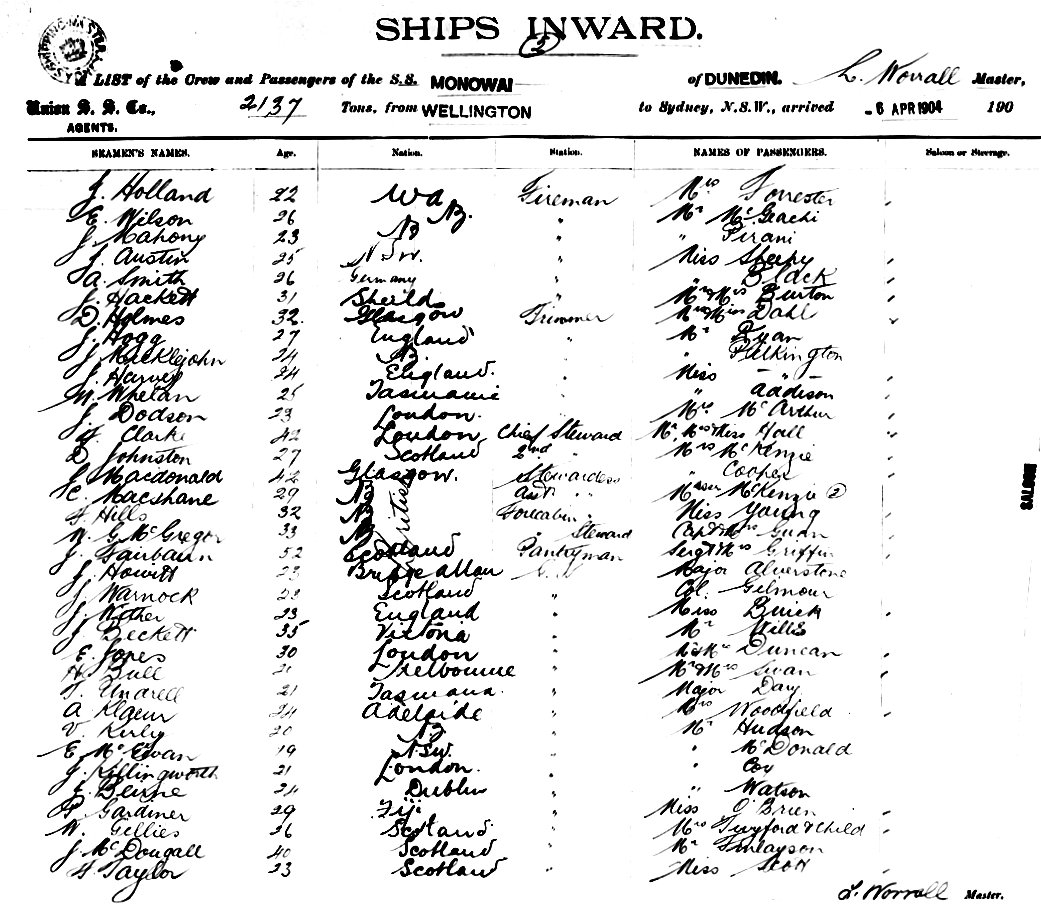 SHIPS INWARD.
(2)
A LIST of the Crew and Passengers of the S.S. MONOWAI of DUNEDIN. L. Worrall Master,
Union S. S. Co., AGENTS. 2137 Tons, from WELLINGTON to Sydney, N.S.W., arrived - 6 APR 1904 190
SEAMEN'S NAMES. Age. Nation. Station. NAMES OF PASSENGERS. Saloon or Steerage.
J. Holland 22 Fireman Mrs Forrester "
E. Wilson 26 " Mr McGeachi
J. Mahony 23 " " Pirani
J. Austin 25 NSW. " Miss "
A. Smith 26 Germany " " Black
J. Hackett 31 Sheilds " Mr & Mrs Burton "
D. Holmes 32 Glasgow Trimmer Dahl "
J. Hogg 27 England " Mr Ryan
24 " " Pilkington
J. Harvey 24 England. " Miss — " —
M. Whelan 25 Tasmania " " Addison
J. Dodson 23 London. " Mrs McArthur
Clarke 42 London Chief Steward Mr Mrs & Miss Hall
D. Johnston 27 Scotland 2nd " Mrs McKenzie
J. Macdonald 42 Glasgow. Stewardess " Cooper
C. Macshane 29 Asst " McKenzie (2)
Hills 32 British Forecabin " Miss Young
W. G. McGregor 33 Steward Capt & Mrs
J. Fairbairn 52 Scotland Pantryman Sergt & Mrs Griffin
J. Howitt 23 Bridge Allan Major Alverstone
J. Warnock Scotland " Col. Gilmour
23 England " Miss Buick
J. Beckett 35 Victoria " Mr Wills
E. Jones 30 London " Duncan
H. Bull 21 Melbourne " Mr & Mrs Swan
21 Tasmania. " Major Day
A. 24 Adelaide " Mrs Woodfield
V. 20 " Mr Hudson
E. McEwan 19 NSW. " " McDonald
J. Killingworth 21 London. " " Coy
J. Beirne 24 Dublin " " Watson
Gardiner 29 Fiji " Miss O'Brien
W. Gillies 26 Scotland " Mrs Twyford & Child
J. McDougall 40 Scotland " Mr Finlayson
Taylor 23 Scotland " Miss Scott
SALOON
L. Worrall Master.